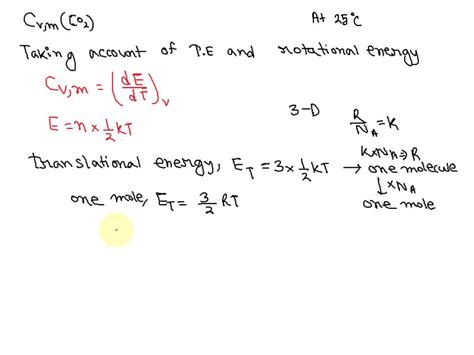 Cv,m (CO2) At 25°C
Taking account of T.E and rotational energy
Cv,m = (dE/dT)v
E = n × 1/2 kT
3-D R/NA = K
translational energy, ET = 3 × 1/2 kT → one molecule
K×NA ⇒ R
↓ ×NA
one mole, ET = 3/2 RT
one mole